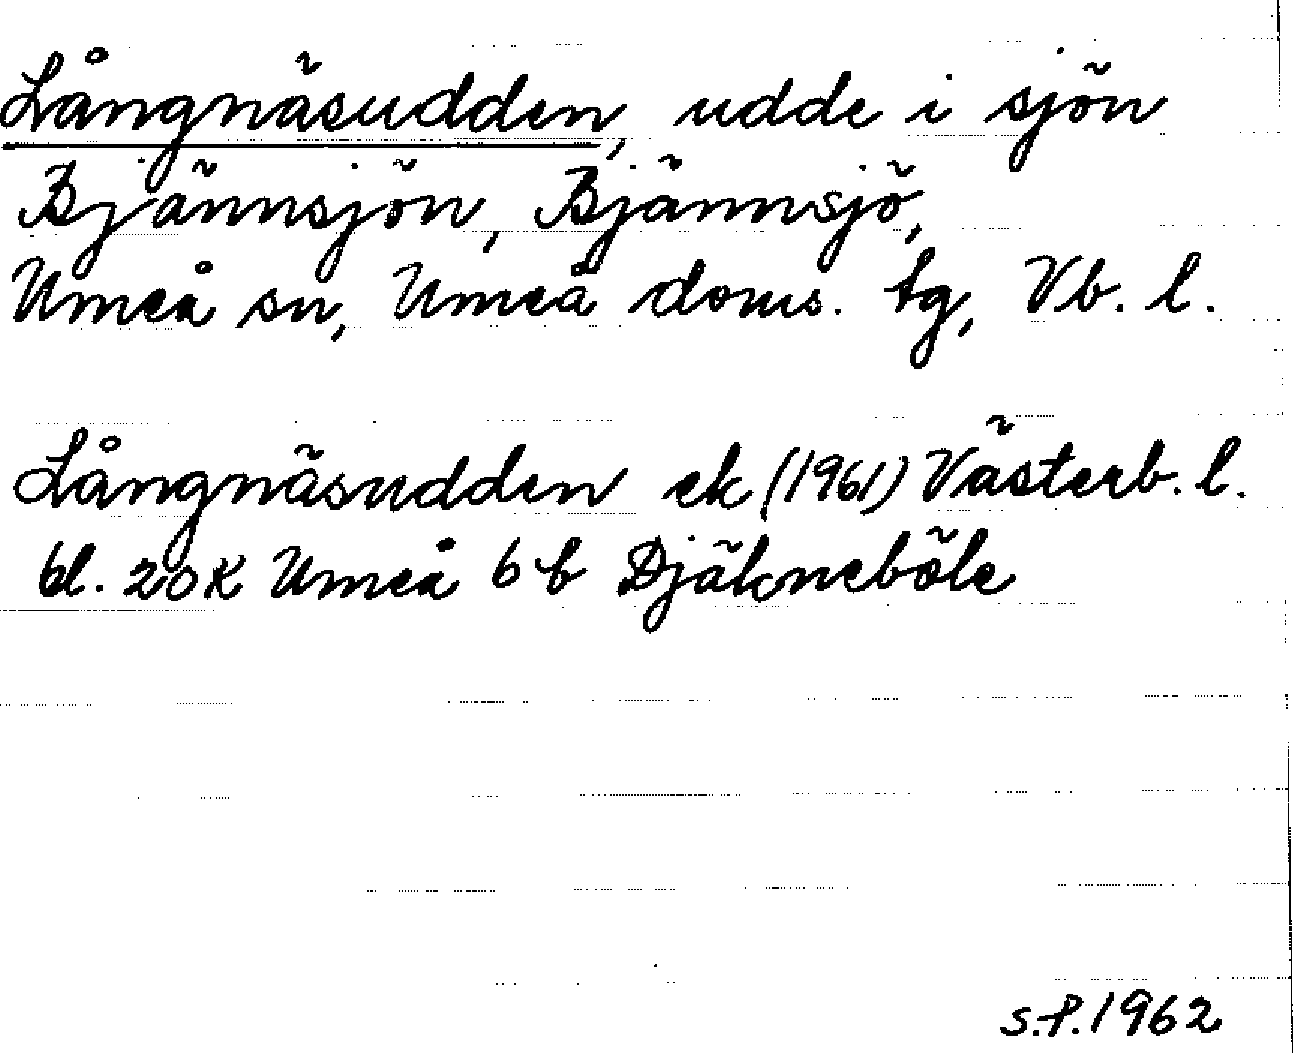 Långnäsudden, udde i sjön
Bjännsjön, Bjännsjö,
Umeå sn, Umeå doms. tg, Vb. l.
Långnäsudden ek (1961) Västerb. l.
bl. 20K Umeå 6b Djäkneböle
S.P. 1962